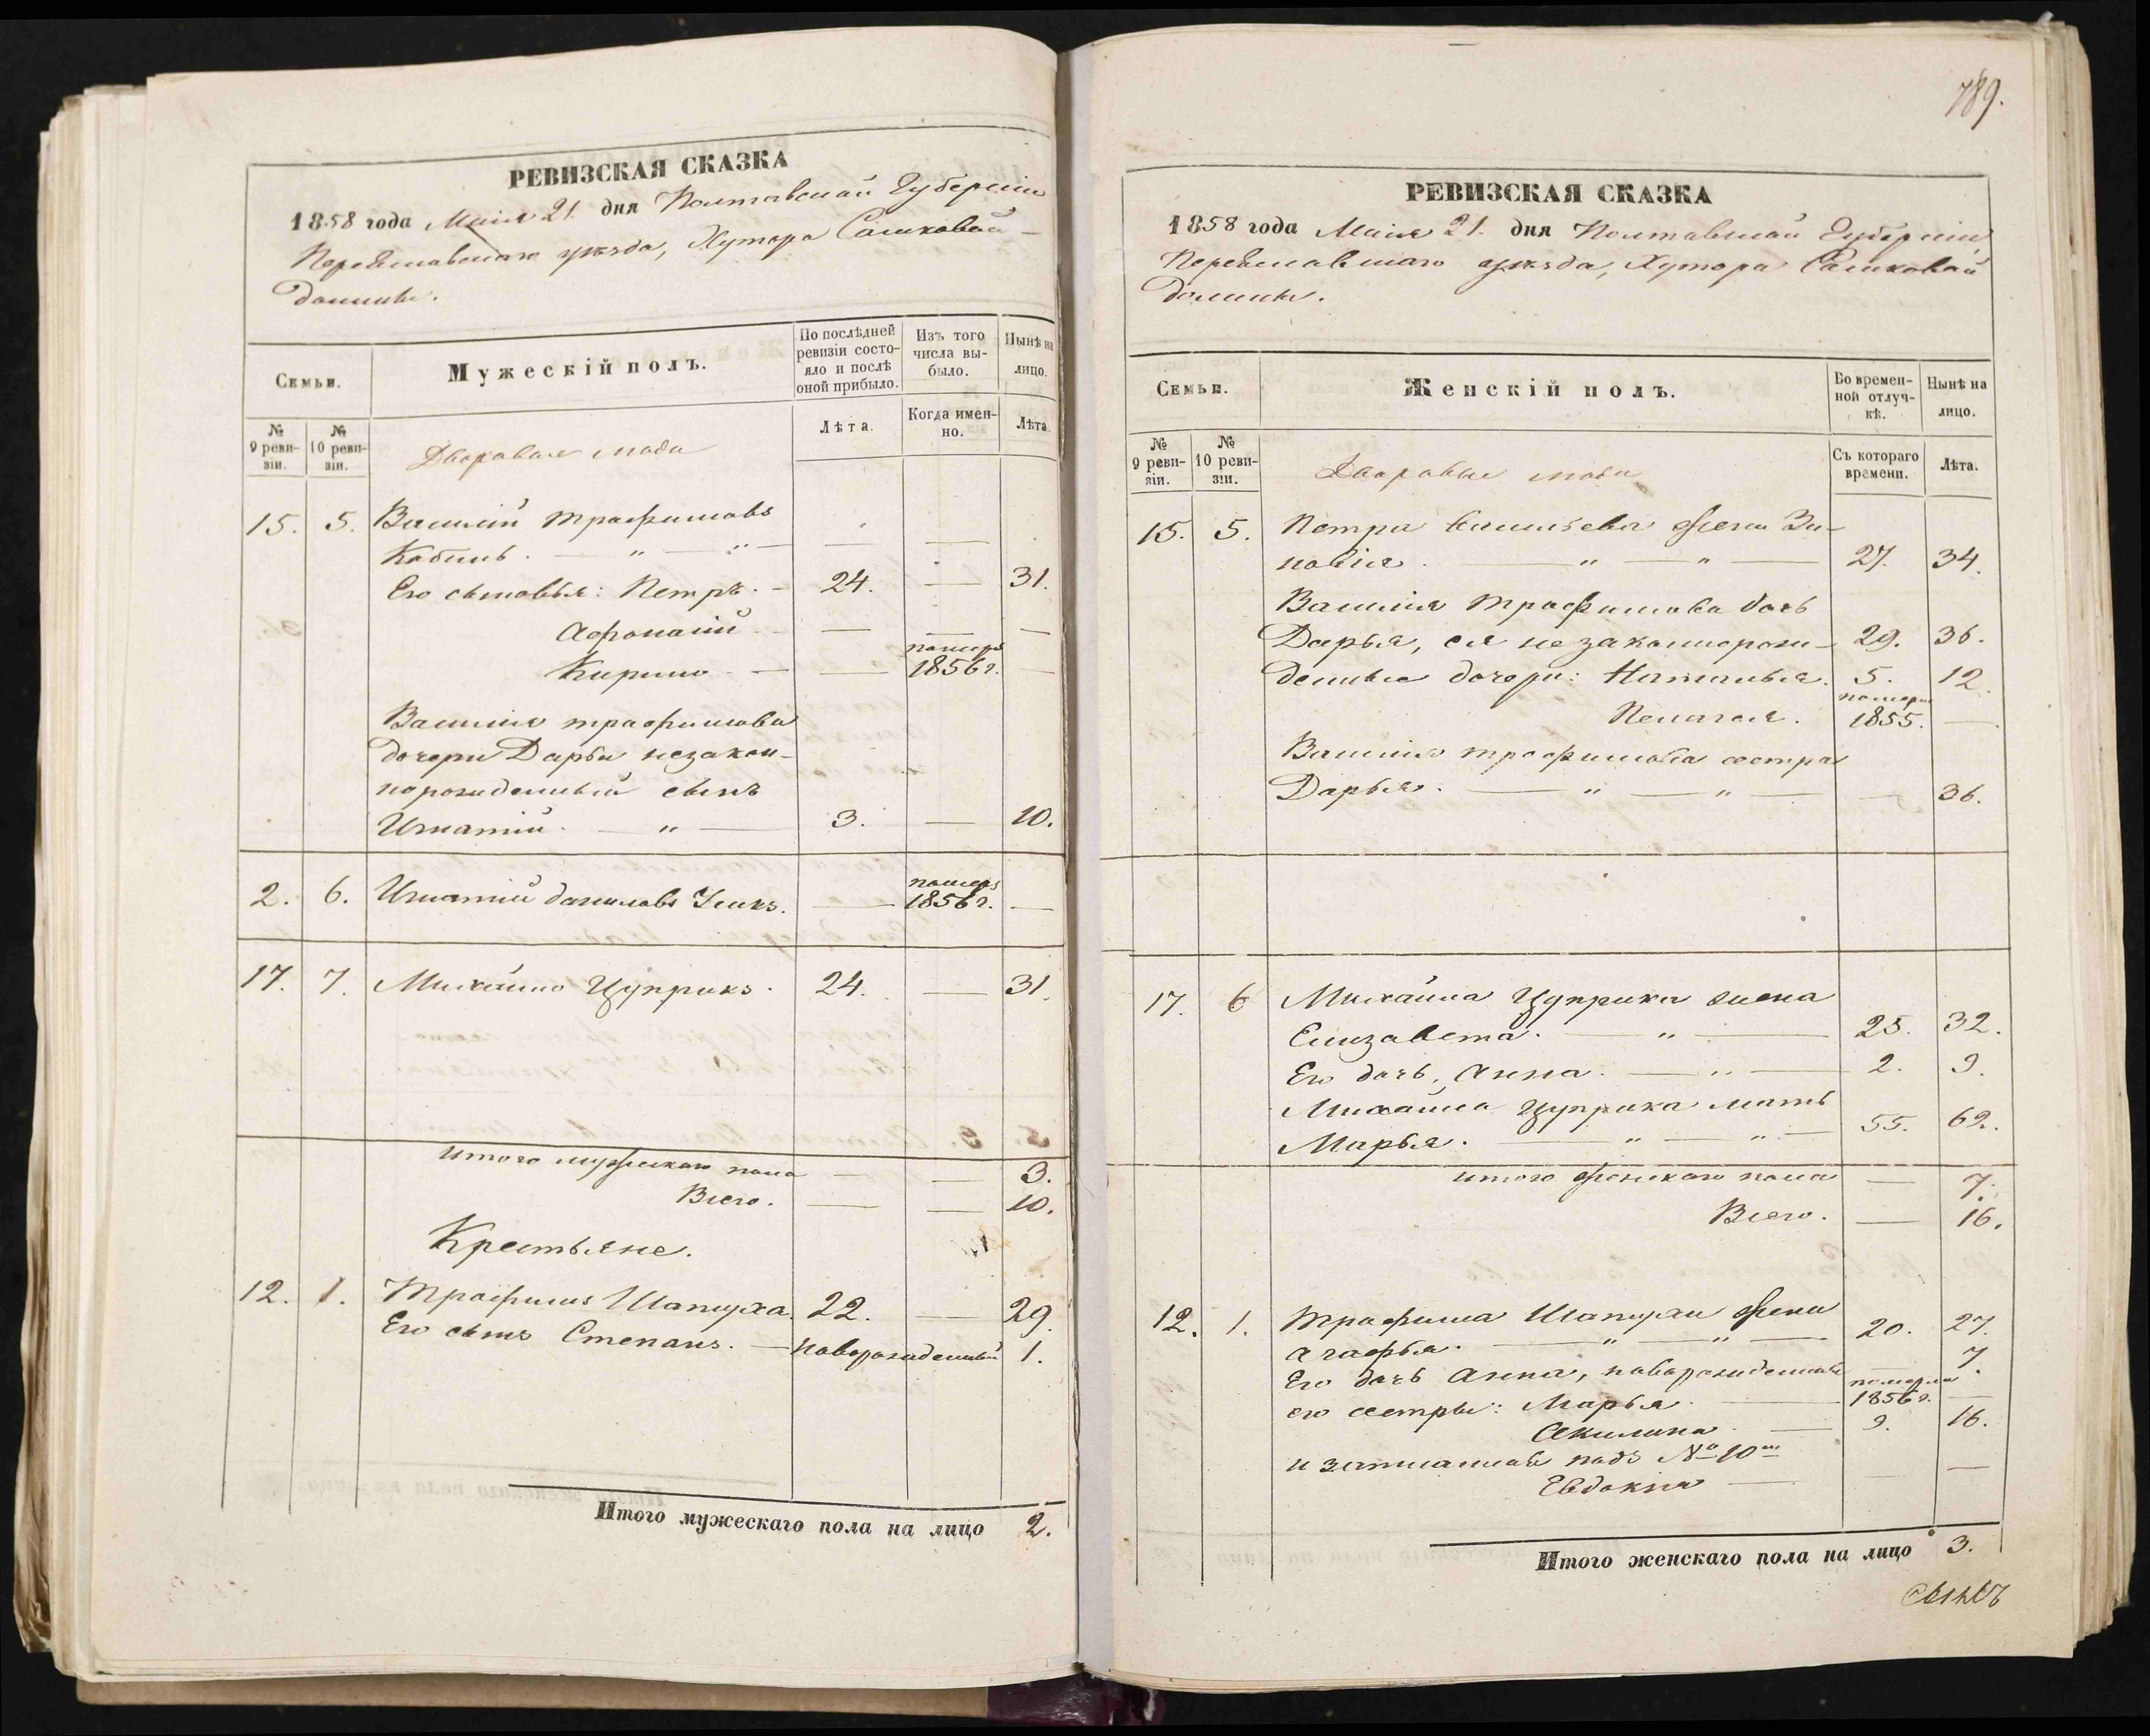 РЕВИЗСКАЯ СКАЗКА
1858 года Маія 21. дня Полтавской Губерніи
Переяславскаго уѣзда, Хутора Сашковой
долины.
Семьи.
Мужескій полъ.
По послѣдней ревизіи состояло и послѣ оной прибыло.
Изъ того числа выбыло.
Нынѣ на лицо.
№ 9 ревизіи.
№ 10 ревизіи.
Дворовые люди
Лѣта.
Когда именно.
Лѣта
15. 5. Василій Трофимовъ
— —
Его сыновья: Петръ. 24. — 31.
Афонасій — — —
померъ
Кирило — — 1856 г. —
Василія трофимова
дочери Дарьи незакон-
норожденный сынъ
Игнатій. — " — 3. — 10.
померъ
2. 6. Игнатій даниловъ — 1856 г. —
17. 7. Михайло Цуприкъ. 24. — 31.
Итого мужескаго пола — — 3.
Всего. — — 10.
Крестьяне.
12. 1. Трофимъ Шапуха. 22. — 29.
Его сынъ Степанъ. — новорожденный 1.
Итого мужескаго пола на лицо 2.
789.
РЕВИЗСКАЯ СКАЗКА
1858 года Маія 21. дня Полтавской Губерніи
Переяславскаго уѣзда, Хутора Сашковой
долины.
Семьи.
Женскій полъ.
Во временной отлучкѣ.
Нынѣ на лицо.
№ 9 ревизіи.
№ 10 ревизіи.
Дворовые люди
Съ котораго времени.
Лѣта.
15. 5. Петра Васильева жена Зи-
новія. — " — " — 27. 34.
Василія Трофимова дочь
Дарья, ея незаконнорож- 29. 36.
денные дочери: Наталья. 5. 12.
померла
Пелагея. 1855. —
Василія трофимова сестра
Дарья. — " — " — — 36.
17. 6 Михайла Цуприка жена
Елизавета. — " — 25. 32.
Его дочь, Анна. — " — 2. 9.
Михайла Цуприка мать
Марья. — " — " — 55. 62.
итого женскаго пола — 7.
Всего. — 16.
12. 1. Трофима Шапухи жена
Агафья. — " — " — 20. 27.
Его дочь Анна, новорожденная — 7.
померла
его сестры: Марья. — 1856 г. —
Акилина — 9. 16.
и записанная подъ № 10м
Евдокія — — —
Итого женскаго пола на лицо 3.